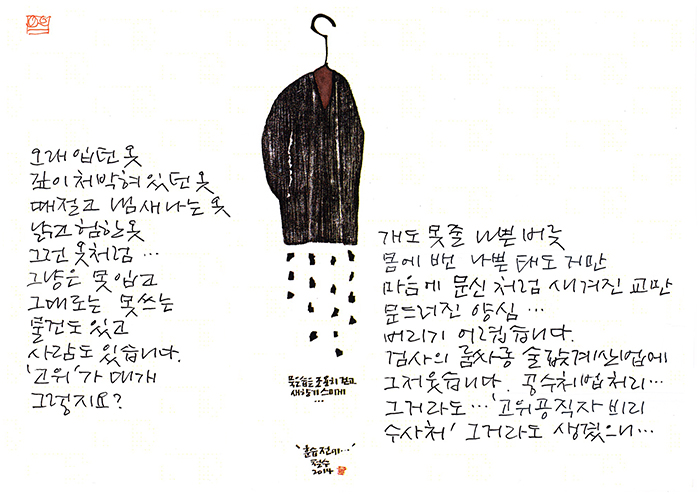 오래 입던 옷
깊이 처박혀 있던 옷
때절고 냄새나는 옷
낡고 험한 옷
그런 옷처럼 …
그냥은 못 입고
그대로는 못쓰는
물건도 있고
사람도 있습니다.
'고위'가 대개
그렇지요?
개도 못줄 나쁜 버릇
몸에 밴 나쁜 태도 거만
마음에 문신처럼 새겨진 교만
문드러진 양심 …
버리기 어렵습니다.
검사의 룸싸롱 술값계산법에
그저웃습니다. 공수처법처리…
그거라도…'고위공직자 비리
수사처' 그거라도 생겼으니…
묵은습은 조용히 걷고
새향기 스미게
…
'훈습전에…'
철수
2014